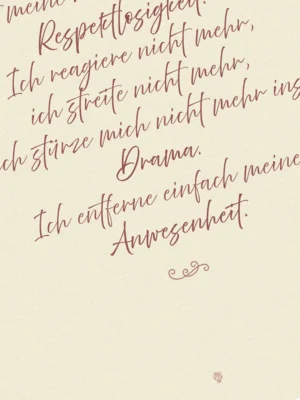 meine
Respektlosigkeit.
Ich reagiere nicht mehr,
ich streite nicht mehr,
ich stürze mich nicht mehr ins
Drama.
Ich entferne einfach meine
Anwesenheit.